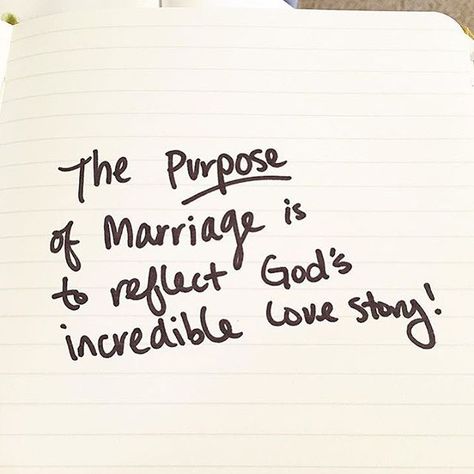 The Purpose
of Marriage is
to reflect God's
incredible love story!